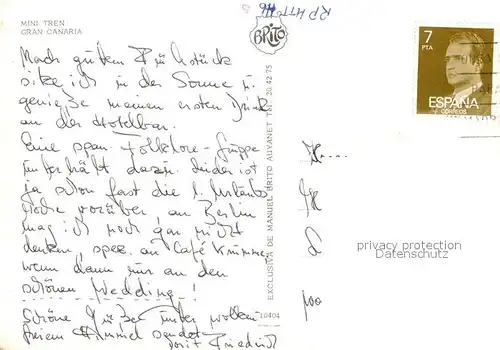 MINI TREN
GRAN CANARIA
BRITO
7
PTA
ESPAÑA
CORREOS
Nach gutem Frühstück
sitze ich in der Sonne u.
genieße meinen ersten Drink
an der Hotelbar.
Eine span. Folklore-Gruppe
unterhält dazu. Leider ist
ja schon fast die 1. Urlaubs
woche vorüber, an Berlin
mag ich noch gar nicht
denken, spez. an Café
wenn dann nur an den
schönen Wedding!
Schöne Grüße unter wolken
freiem Himmel sendet
Dorit Friedrich
EXCLUSIVA DE MANUEL BRITO AUYANET
10404
privacy protection
Datenschutz